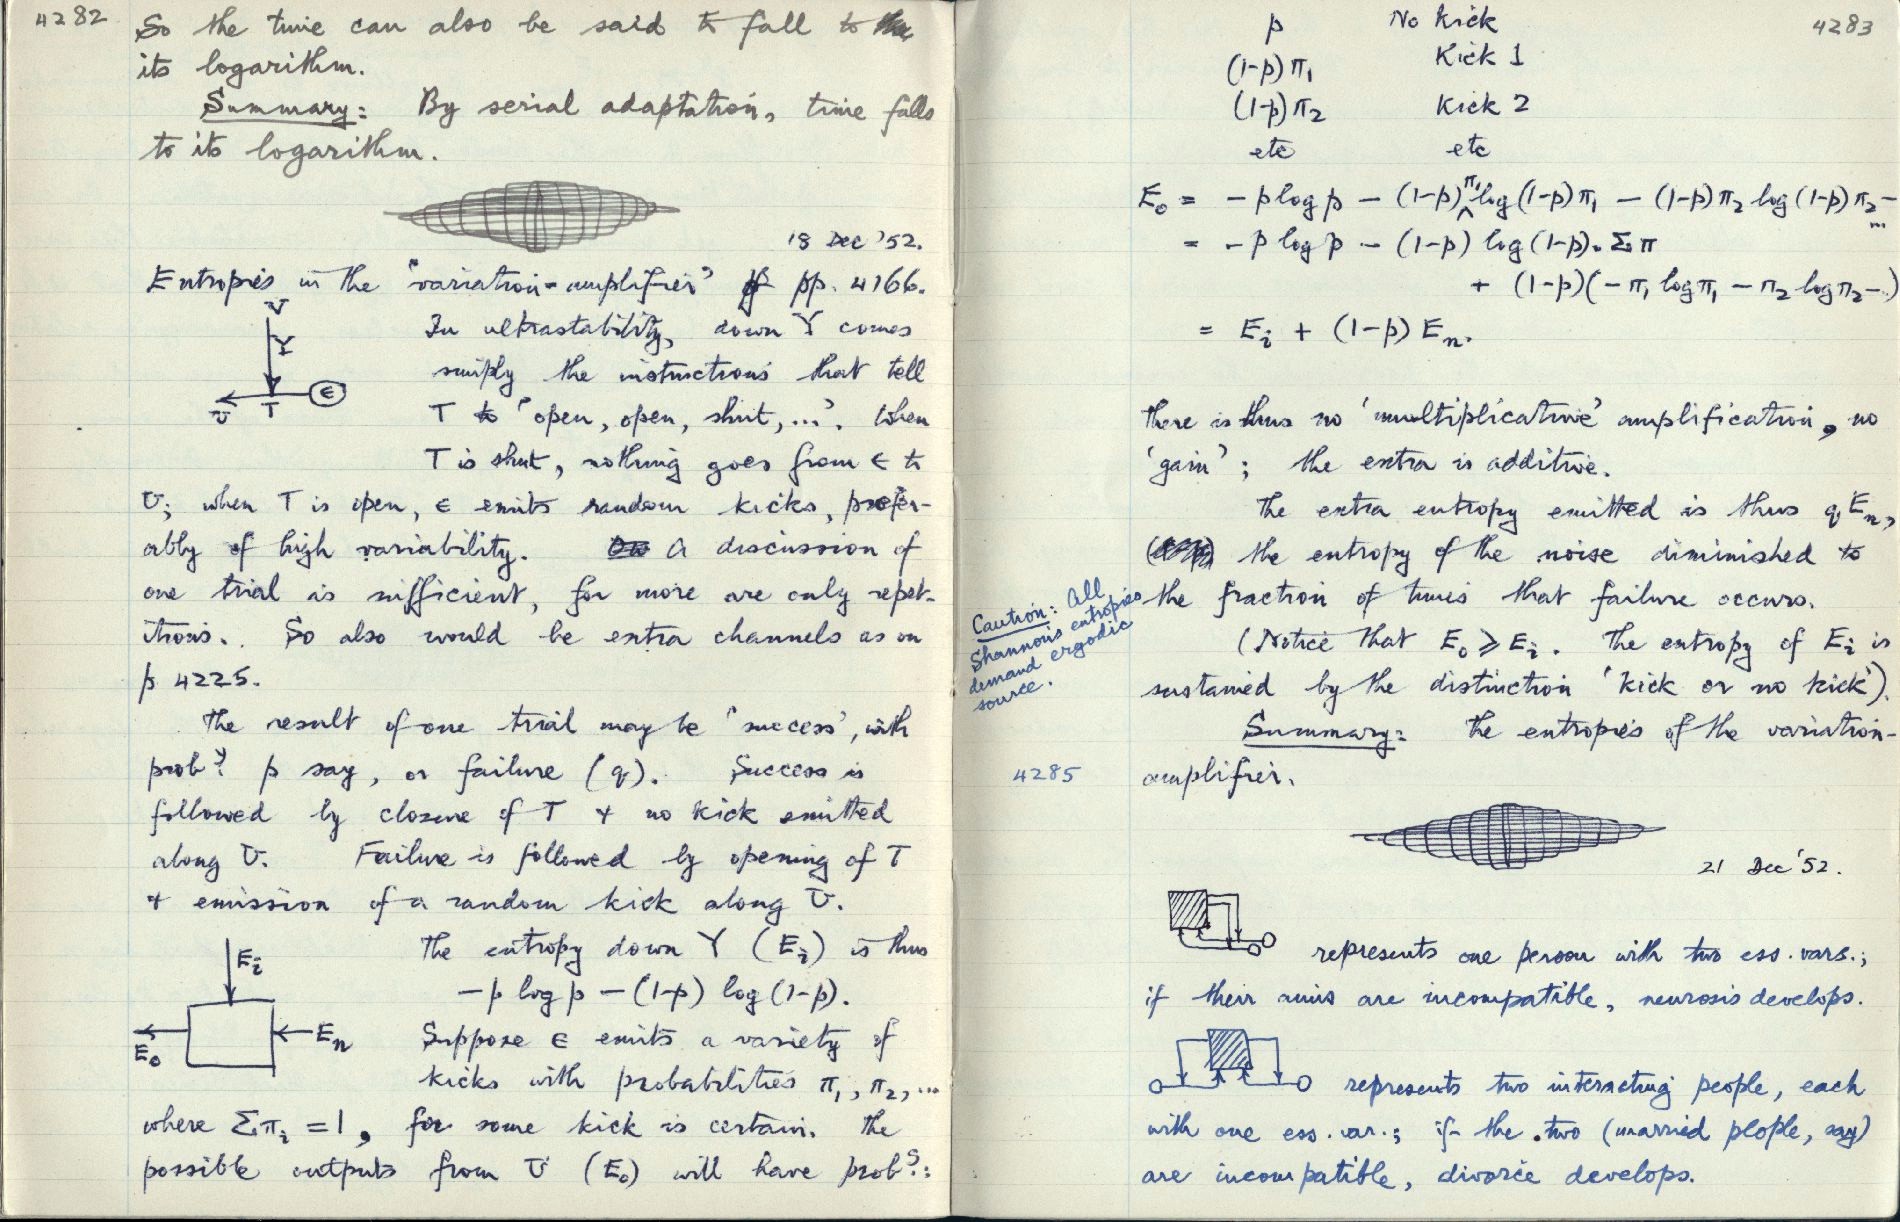 4282
So the time can also be said to fall to
its logarithm.
Summary: By serial adaptation, time falls
to its logarithm.
18 Dec '52.
Entropies in the 'variation-amplifier' of pp. 4166.
V
Y
ϵ
U
T
In ultrastability, down Y comes
simply the instructions that tell
T to 'open, open, shut, ...'. When
T is shut, nothing goes from ϵ to
U; when T is open, ϵ emits random kicks, prefer-
ably of high variability. A discussion of
one trial is sufficient, for more are only repet-
itions. So also would be extra channels as on
p 4225.
The result of one trial may be 'success', with
prob.y p say, or failure (q). Success is
followed by closure of T & no kick emitted
along U. Failure is followed by opening of T
& emission of a random kick along U.
Ei
Eo
En
The entropy down Y (Ei) is thus
-p log p - (1-p) log (1-p).
Suppose ϵ emits a variety of
kicks with probabilities π1, π2, ...
where Σπi = 1, for some kick is certain. The
possible outputs from U (Eo) will have prob.s:
4283
p No kick
(1-p)π1 Kick 1
(1-p)π2 Kick 2
etc etc
Eo = -p log p - (1-p) π1 log (1-p)π1 - (1-p)π2 log (1-p)π2 - ...
= -p log p - (1-p) log (1-p). Σπ
+ (1-p)(-π1 log π1 - π2 log π2 - ..)
= Ei + (1-p) En.
There is thus no 'multiplicative' amplification, no
'gain'; the extra is additive.
The extra entropy emitted is thus q En,
the entropy of the noise diminished to
the fraction of times that failure occurs.
Caution: All
Shannon's entropies
demand ergodic
source.
(Notice that Eo ⩾ Ei. The entropy of Ei is
sustained by the distinction 'kick or no kick').
Summary: The entropies of the variation-
4285
amplifier.
21 Dec '52.
represents one person with two ess. vars.;
if their aims are incompatible, neurosis develops.
represents two interacting people, each
with one ess. var.; if the two (married people, say)
are incompatible, divorce develops.